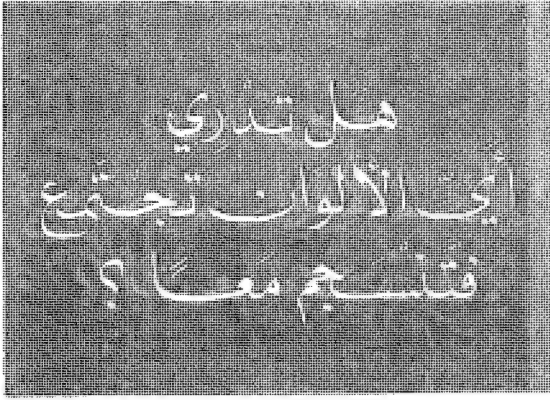 هَل تَدْرِي
أَيّ الأَلْوَان تَجْتَمِع
فَتَنْسَجِم مَعًا ؟